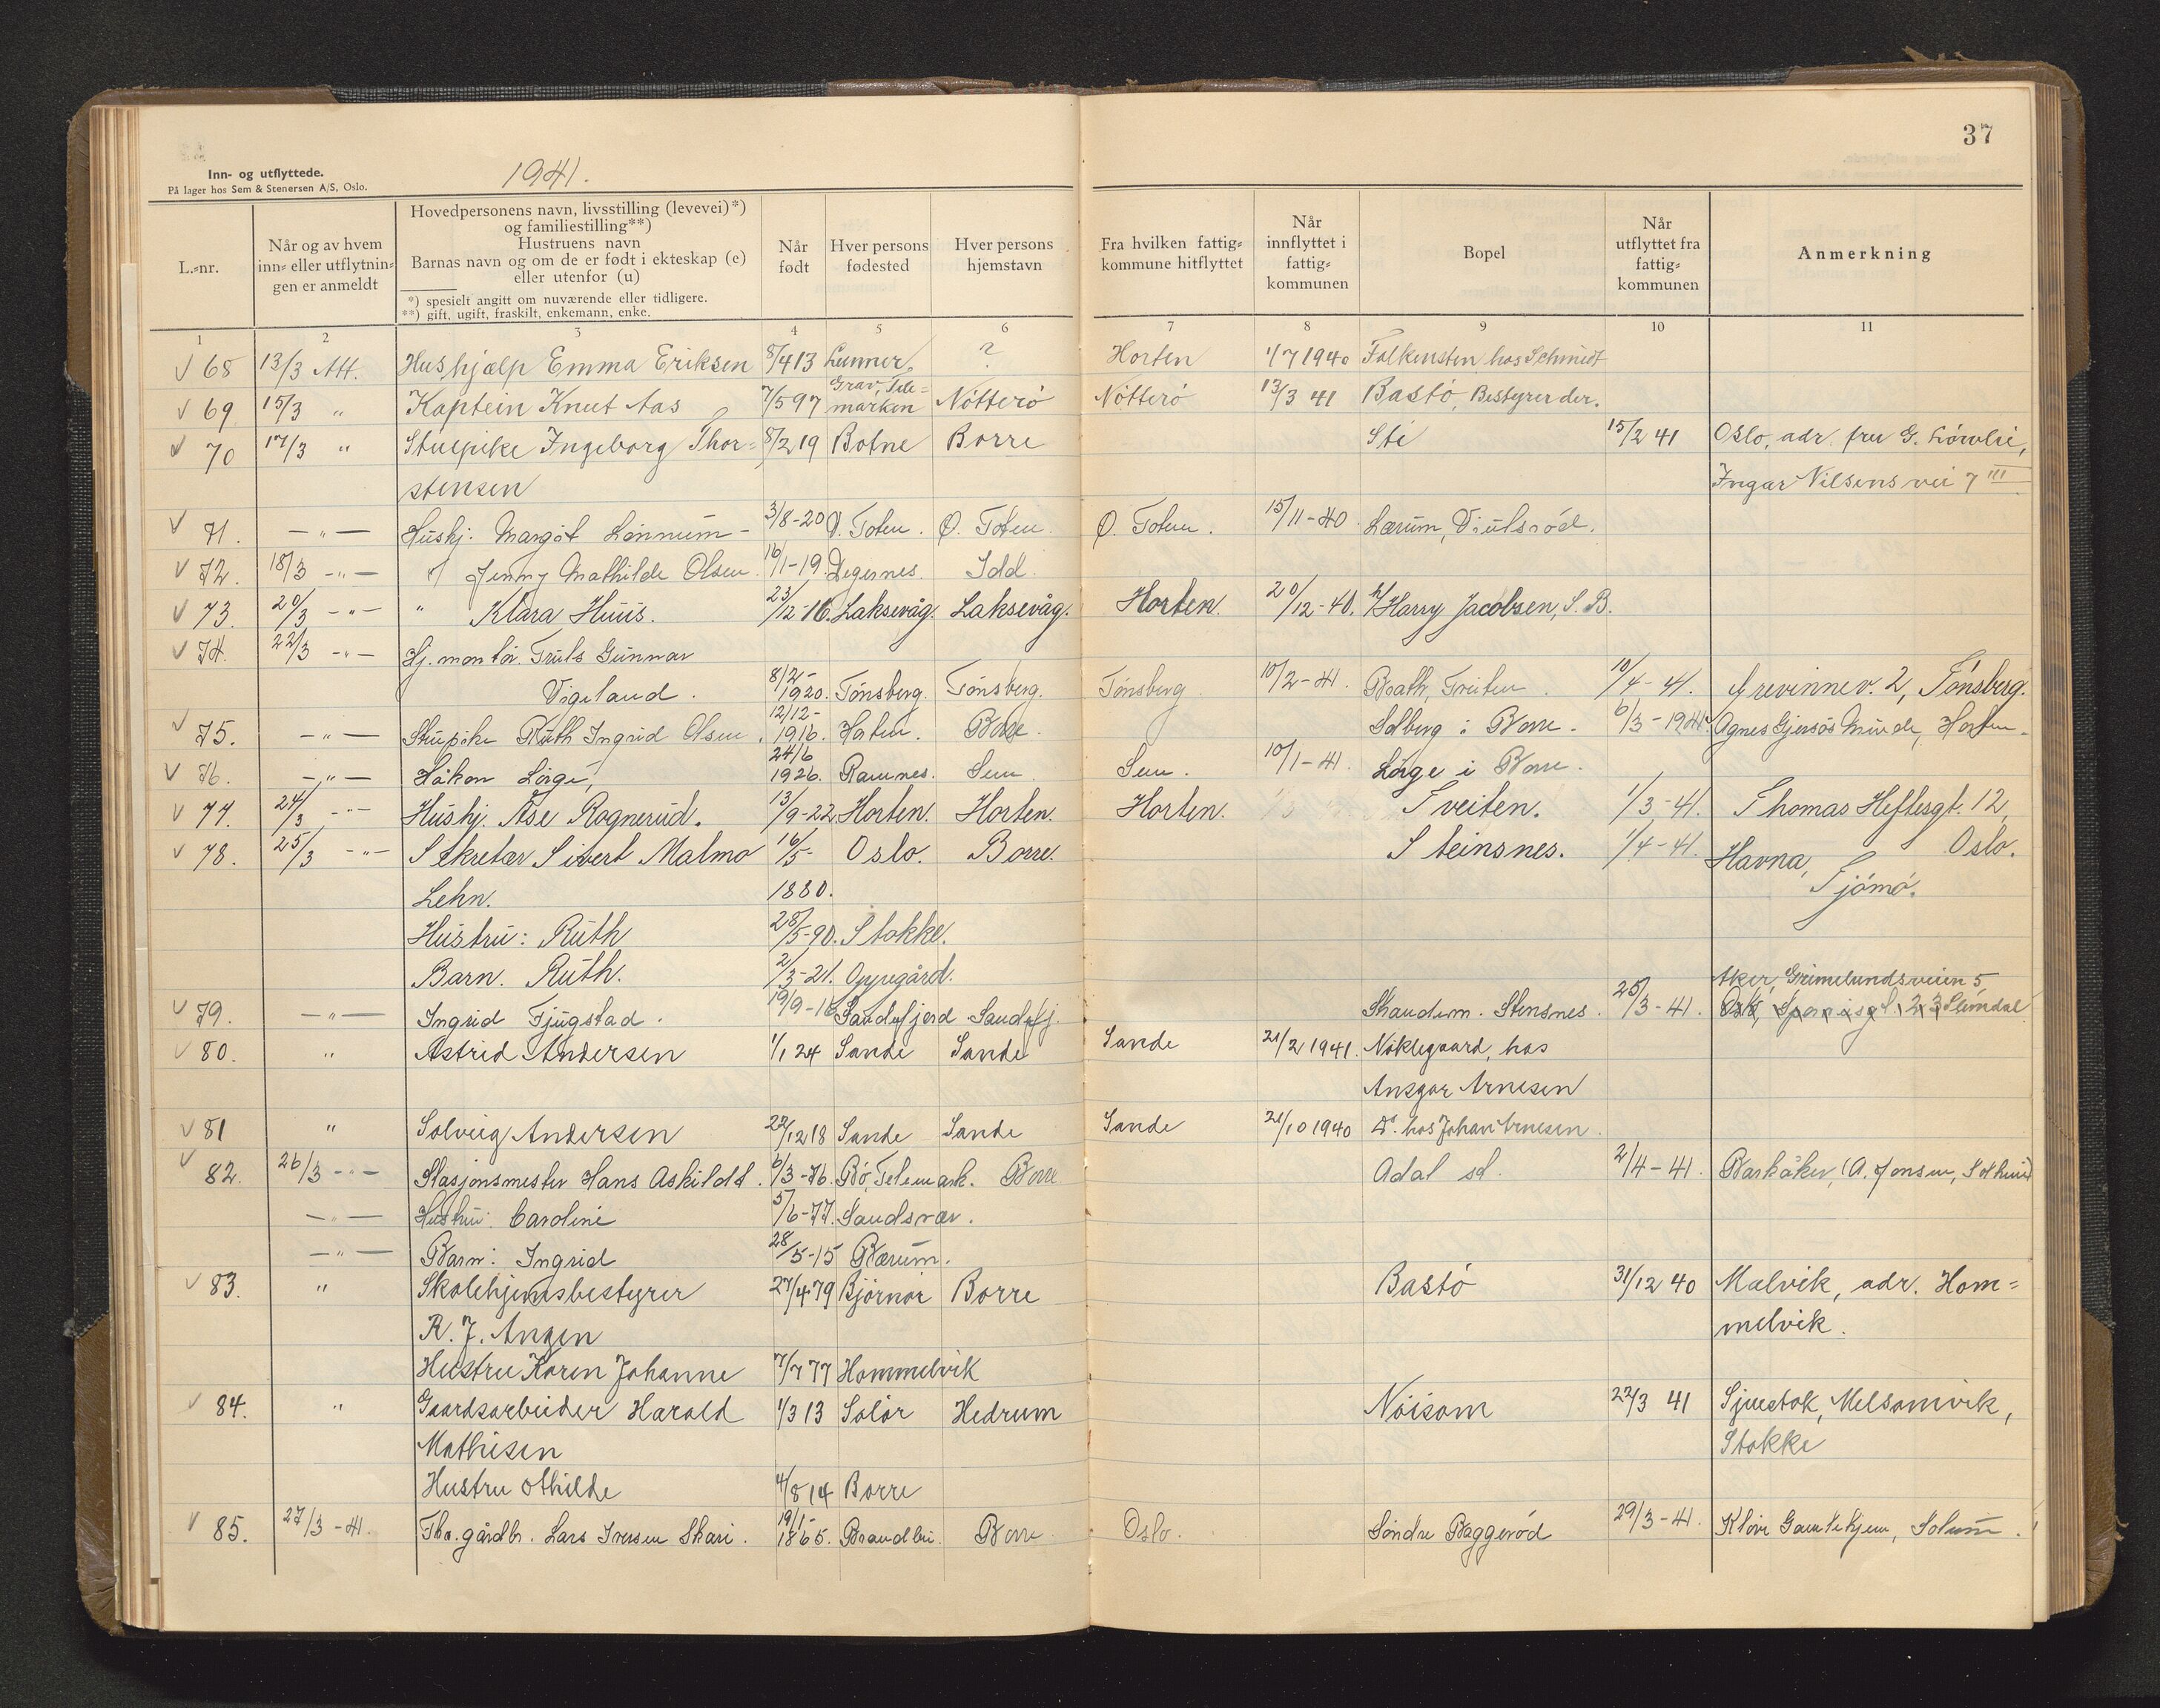 37
Inn- og utflyttede.
På lager hos Sem & Stenersen A/S, Oslo.
1941.
L.-nr.
Når og av hvem inn- eller utflytningen er anmeldt
Hovedpersonens navn, livsstilling (levevei)*)
og familiestilling**)
Hustruens navn
Barnas navn og om de er født i ekteskap (e)
eller utenfor (u)
*) spesielt angitt om nuværende eller tidligere.
**) gift, ugift, fraskilt, enkemann, enke.
Når født
Hver persons fødested
Hver persons hjemstavn
Fra hvilken fattig-kommune hitflyttet
Når innflyttet i fattig-kommunen
Bopel
Når utflyttet fra fattig-kommunen
Anmerkning
1 2 3 4 5 6 7 8 9 10 11
√ 68 13/3 Att. Hushjælp Emma Eriksen 8/4 13 Lunner. ? Horten 1/7 1940 Falkensten hos Schmidt
√ 69 15/3 " Kaptein Knut Aas 7/5 97 Grav, Tele=marken Nötterö Nötterö 13/3 41 Bastö, Bestyrer der.
√ 70 17/3 " Stuepike Ingeborg Thor= 8/2 19 Botne Borre Sti 15/2 41 Oslo, adr. fru G.
stensen Ingar Nilsens vei 7 III
√ 71. — " — Hushj. Margit Lønnum - 3/8-20 Ö. Toten. Ö. Toten. Ö. Toten. 15/11-40 Lærum, Viulsröd.
√ 72. 18/3 - " - " Jenny Mathilde Olsen. 16/1-19. Degernes. Idd.
√ 73. 20/3 - " - " Klara Huus. 23/12-16. Laksevåg. Laksevåg. Horten. 20/12-40. h/Harry Jacobsen, S. B.
√ 74. 22/3 - " - Hj. montör. Truls Gunnar
Vigeland. 8/2-1920. Tönsberg. Tönsberg. Tönsberg. 10/2-41. Brath, Treiten. 10/4-41. Grevinnev. 2, Tönsberg.
√ 75. - " - Stupike Ruth Ingrid Olsen. 12/12-1916. Haten. Borre. Solberg i Borre. 6/3-1941. Agnes Gjersös Minde, Horten.
√ 76. - " - Håkon Lörge, 24/6 1926. Ramnes. Sem. Sem. 10/1-41. Lörge i Borre.
√ 77. 24/3 - " - Hushj. Åse Rognerud. 13/9-22 Horten. Horten. Horten. Tveiten. 1/3-41. Thomas Heftesgt. 12,
Oslo.
√ 78. 25/3 - " - Sekretær Sivert Malmo 16/5- Oslo. Borre. Steinsnes. 1/4-41. Havna,
Lehn. 1880. Tjömö.
Hustru: Ruth 28/5-90. Stokke.
Barn. Ruth. 2/3-21. Oppegård.
Aker, Grimelundsveien 5
√ 79. - " - Ingrid Fjugstad. 19/9-16 Sandefjord Sandefj. Skaudum. Stensnes. 25/3-41. Slemdal
√ 80. " Astrid Andersen 1/1 24 Sande Sande Sande 21/2 1941. Nöklegaard, hos
Ansgar Arnesen
√ 81 " Solveig Andersen 22/12 18 Sande Sande Sande 21/10 1940 Do. hos Johan Arnesen.
√ 82. 26/3 - " - Stasjonsmester Hans Askildt. 6/3-76. Bö, Telemark. Borre Adal st. 2/4-41. Barkåker, (A. Jonsen,
- " - Hustru: Caroline 5/6-77. Sandsvær.
- " - Barn: Ingrid 28/5-15 Bærum.
√ 83. " Skolehjemsbestyrer 27/4 79 Björnör Borre Bastö 31/12 40 Malvik, adr. Hom=
R. J. Angen melvik.
Hustru Karen Johanne 7/7 77 Hommelvik
√ 84. " Gaardsarbeider Harald 1/3 13 Solör Hedrum Nöisom 22/3 41 Sjuestok, Melsomvik,
Mathisen Stokke
Hustru Othilde 4/8 14 Borre
√ 85. 27/3-41. Fhv. gårdbr. Lars Iversen Skari. 19/1-1865. Brandbu. Borre. Oslo. Söndre Baggeröd 29/3-41. Klöve Gamlehjem, Solum.